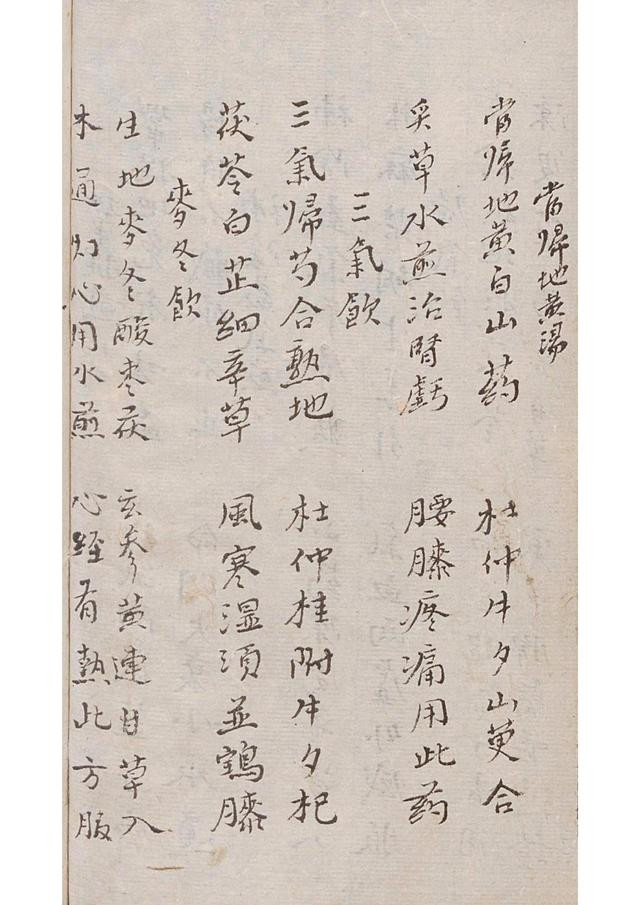 當帰地黄湯
當帰地黄白山葯 杜仲牛夕山萸合
炙草水煎治腎虧 腰膝疼痛用此葯
三氣飲
三氣帰芍合熟地 杜仲桂附牛夕杞
茯苓白芷細辛草 風寒湿須並鶴膝
麥冬飲
生地麥冬酸枣茯 玄参黄連甘草入
木通灯心用水煎 心経有熱此方服